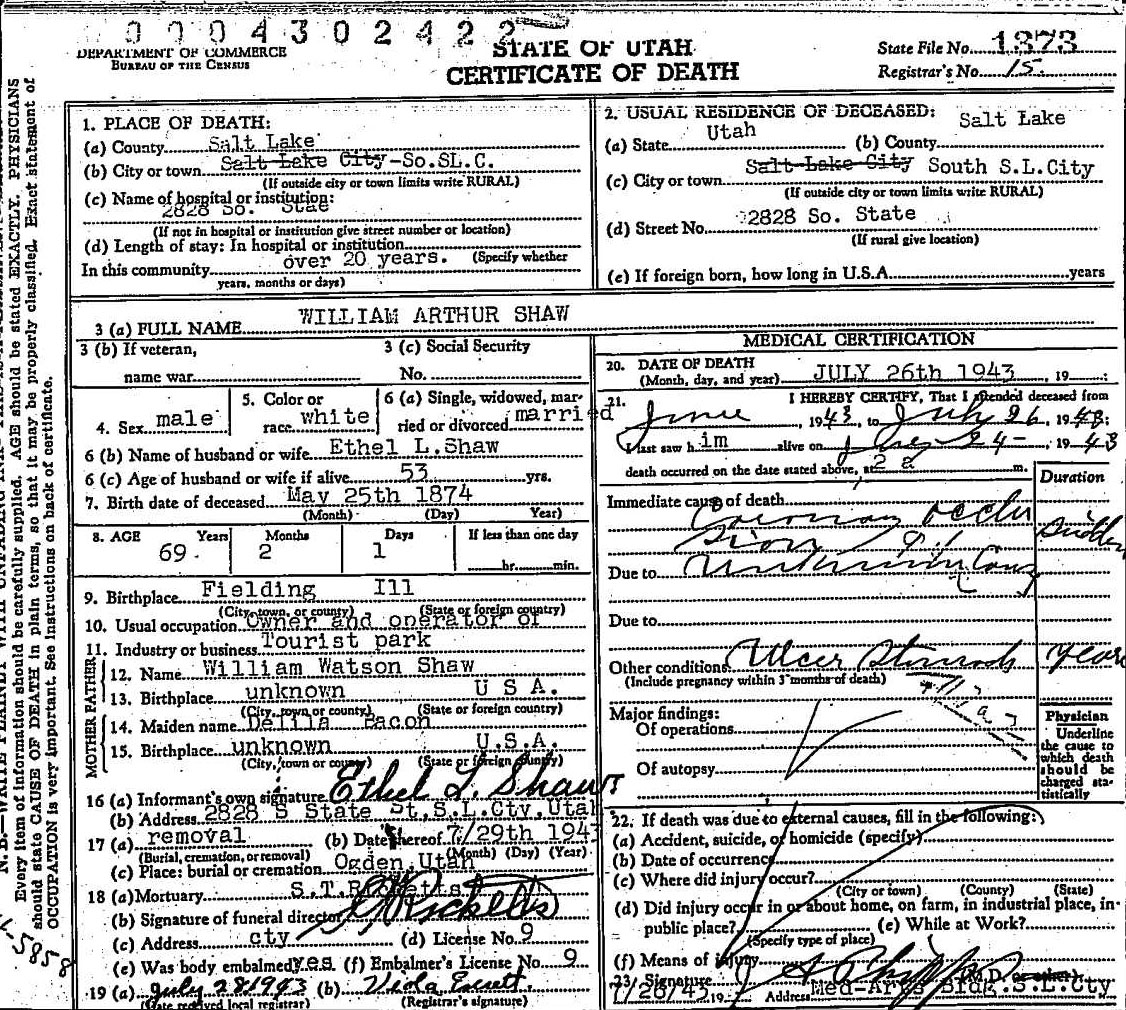 0 0 0 4 3 0 2 4 2 2
DEPARTMENT OF COMMERCE
BUREAU OF THE CENSUS
STATE OF UTAH
CERTIFICATE OF DEATH
State File No. 1373
Registrar's No. 15.
N. B.—WRITE PLAINLY WITH UNFADING INK
Every item of information should be carefully supplied. AGE should be stated EXACTLY. PHYSICIANS
should state CAUSE OF DEATH in plain terms, so that it may be properly classified. Exact statement of
OCCUPATION is very important. See instructions on back of certificate.
1. PLACE OF DEATH:
(a) County Salt Lake
(b) City or town Salt Lake City-So.SL.C.
(If outside city or town limits write RURAL)
(c) Name of hospital or institution:
2828 So. Stae
(If not in hospital or institution give street number or location)
(d) Length of stay: In hospital or institution
In this community over 20 years. (Specify whether
years, months or days)
2. USUAL RESIDENCE OF DECEASED:
(a) State Utah (b) County Salt Lake
(c) City or town Salt Lake City South S.L.City
(If outside city or town limits write RURAL)
(d) Street No. 2828 So. State
(If rural give location)
(e) If foreign born, how long in U.S.A. years
3 (a) FULL NAME WILLIAM ARTHUR SHAW
3 (b) If veteran,
name war
3 (c) Social Security
No.
4. Sex male
5. Color or
race white
6 (a) Single, widowed, mar-
ried or divorced married
6 (b) Name of husband or wife Ethel L.Shaw
6 (c) Age of husband or wife if alive 53 yrs.
7. Birth date of deceased May 25th 1874
(Month) (Day) Year)
8. AGE Years Months Days If less than one day
69. 2 1 hr. min.
9. Birthplace Fielding Ill
(City, town, or county) (State or foreign country)
10. Usual occupation Owner and operator of
11. Industry or business Tourist park
FATHER
12. Name William Watson Shaw
13. Birthplace unknown U S A.
(City, town or county) (State or foreign country)
MOTHER
14. Maiden name Delila Bacon
15. Birthplace unknown U.S.A.
(City, town or county) (State or foreign country)
16 (a) Informant's own signature Ethel L. Shaw
(b) Address 2828 S State St,S.L.Cty,Utah
17 (a) removal (b) Date thereof 7/29th 1943
(Burial, cremation, or removal) (Month) (Day) (Year)
(c) Place: burial or cremation Ogden Utah
18 (a) Mortuary S.T.Ricketts
(b) Signature of funeral director Ricketts
(c) Address cty (d) License No. 9
(e) Was body embalmed yes (f) Embalmer's License No. 9
19 (a) July 28 1943 (b) Viola
(Date received local registrar) (Registrar's signature)
MEDICAL CERTIFICATION
20. DATE OF DEATH
(Month, day, and year) JULY 26th 1943, 19
21. I HEREBY CERTIFY, That I attended deceased from
June, 1943, to July 26, 1943;
I last saw him alive on July 24-, 1943
death occurred on the date stated above, at 2 a m.
Duration
Immediate cause of death
Coronary Occlu
sion Sudden
Due to Unknown Cause
Due to
Other conditions Ulcer Stomach years
(Include pregnancy within 3 months of death)
Major findings:
Of operations
Of autopsy
Physician
Underline
the cause to
which death
should be
charged sta-
tistically
22. If death was due to external causes, fill in the following:
(a) Accident, suicide, or homicide (specify)
(b) Date of occurrence
(c) Where did injury occur?
(City or town) (County) (State)
(d) Did injury occur in or about home, on farm, in industrial place, in-
public place? (e) While at Work?
(Specify type of place)
(f) Means of injury
23. Signature (M.D. or other)
7/28/43 19 Address Med-Arts Bldg.S.L.Cty
4-5858